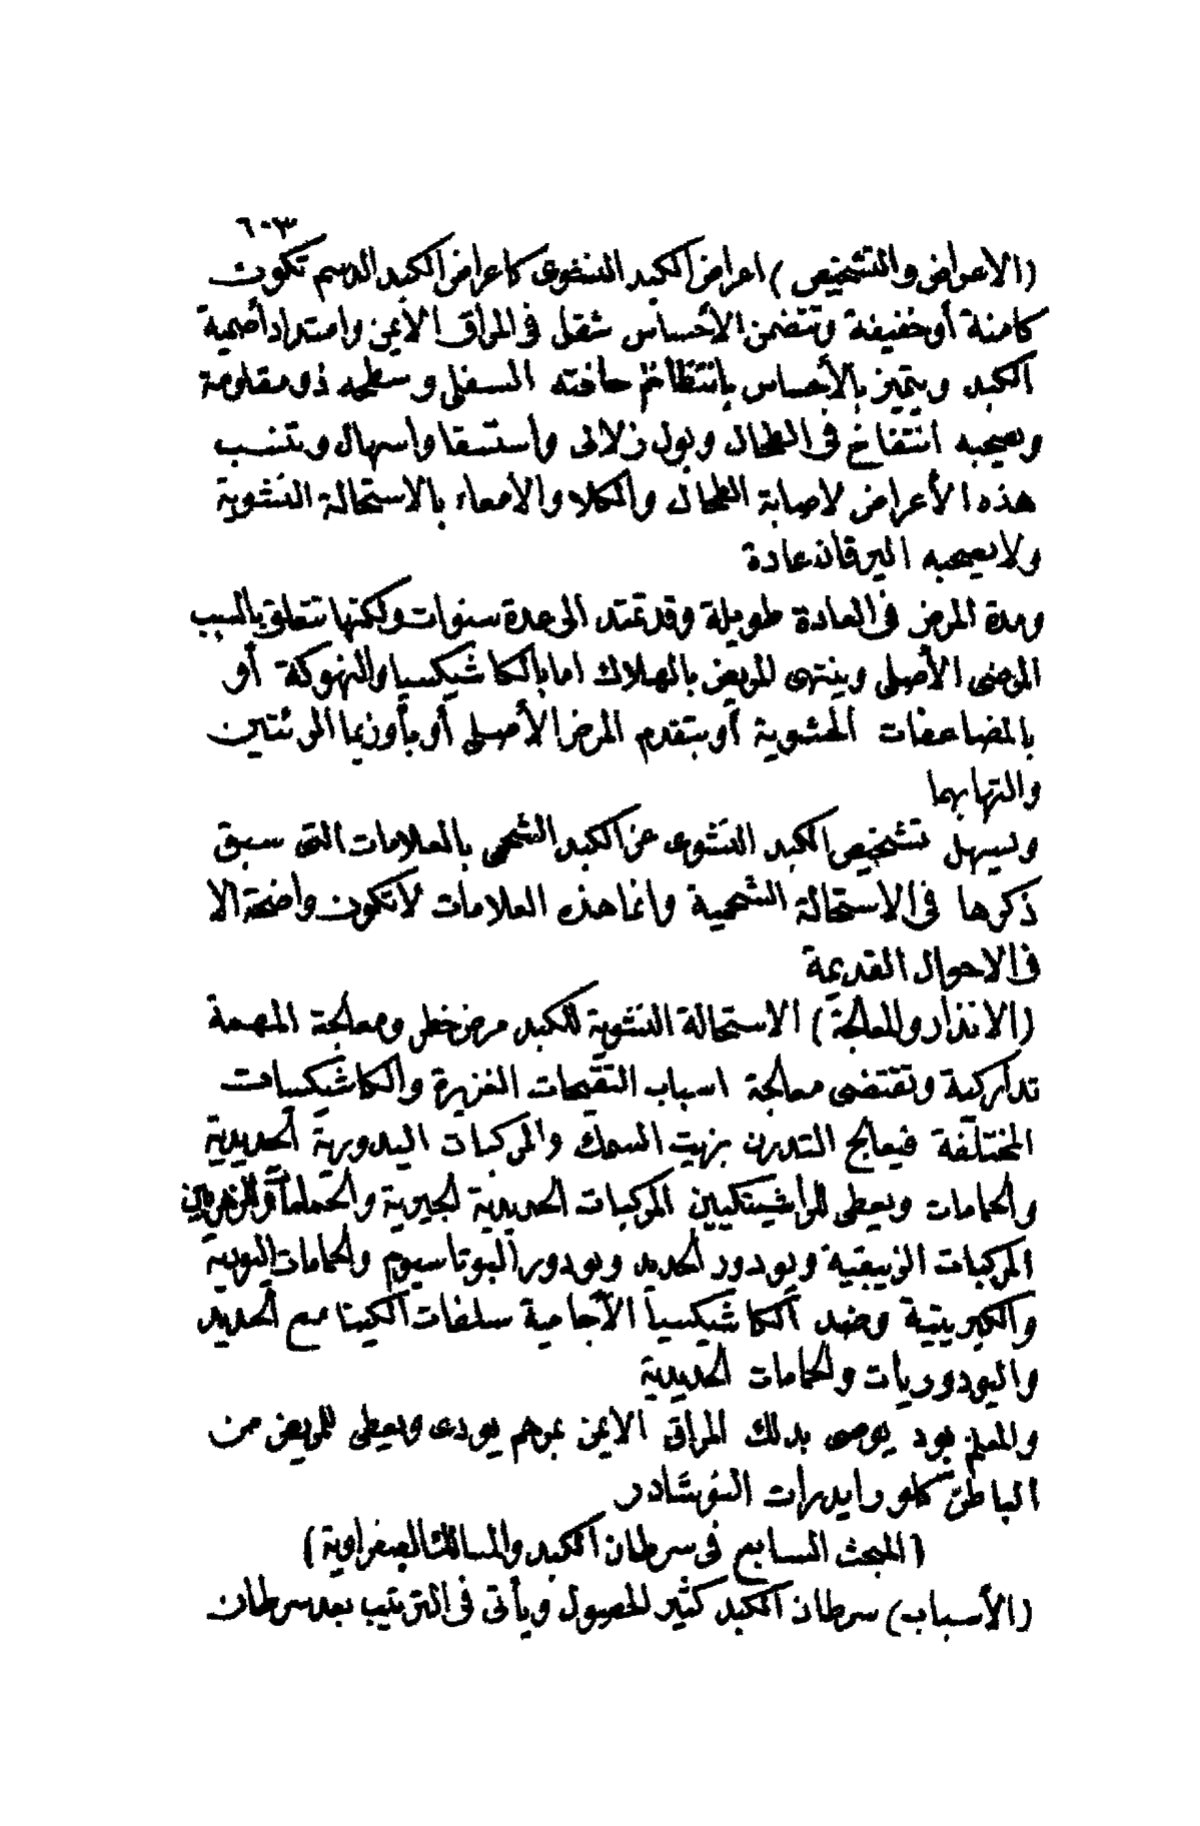 ٦٠٣
(الاعراض والتشخيص) اعراض الكبد النشوى كاعراض الكبد الدسم تكون
كامنة أو خفيفة وتتضمن الاحساس بثقل فى المراق الأيمن وامتداد أصمية
الكبد ويتميز بالأحساس بانتظام حافته السفلى وسطحه ذو مقاومة
ويصحبه انتفاخ فى الطحال وبول زلالى واستسقا واسهال وتنسب
هذه الأعراض لاصابة الطحال والكلا والامعاء بالاستحالة النشوية
ولا يصحبه اليرقان عادة
ومدة المرض فى العادة طويلة وقد تمتد الى عدة سنوات ولكنها تتعلق بالسبب
المرضى الأصلى وينتهى المريض بالهلاك اما بالكاشيكسيا والنهوكة أو
بالمضاعفات الحشوية أو بتقدم المرض الأصلى أو بأوزيما الرئتين
والتهابهما
ويسهل تشخيص الكبد النشوى عن الكبد الشحمى بالعلامات التى سبق
ذكرها فى الاستحالة الشحمية وانما هذه العلامات لا تكون واضحة الا
فى الاحوال القديمة
(الانذار والمعالجة) الاستحالة النشوية للكبد مرض خطر ومعالجة المهمة
تداركية وتقتضى معالجة اسباب التقيحات الغزيرة والكاشيكسيات
المختلفة فيعالج التدرن بزيت السمك والمركبات اليودورية الحديدية
والحمامات ويعطى للراشيتكيين المركبات الحديدية الجيرية والحمامات وللزهريين
المركبات الزيبقية ويودور الحديد ويودور البوتاسيوم والحمامات اليودية
والكبريتية وضد الكاشيكسيا الآجامية سلفات الكينا مع الحديد
واليودوريات والحمامات الحديدية
والمعلم بود يوصى بدلك المراق الايمن بمرهم يودى ويعطى للمريض من
الباطن كلورايدرات النوشادر
(المبحث السابع فى سرطان الكبد والمسالك الصفراوية)
(الأسباب) سرطان الكبد كثير الحصول ويأتى فى الترتيب بعد سرطان